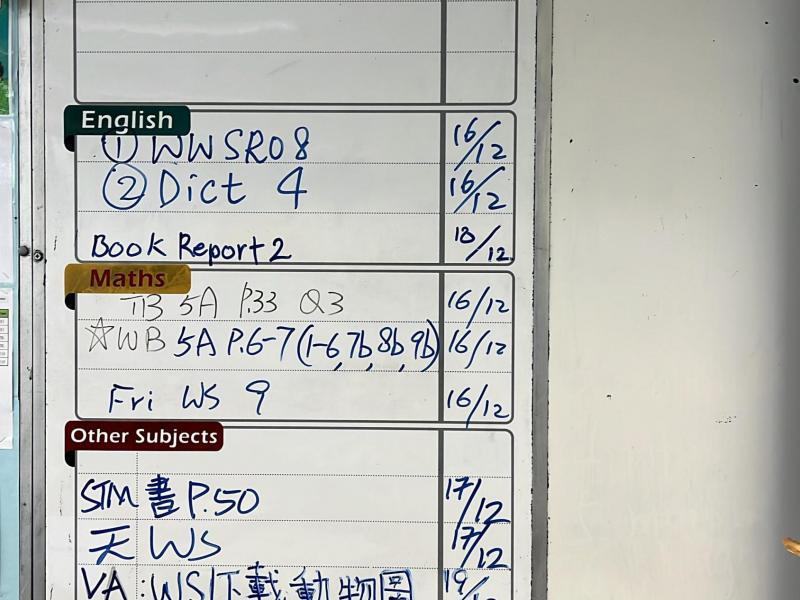 English
① WWSR08 16/12
② Dict 4 16/12
Book Report 2 18/12
Maths
TB 5A P.33 Q3 16/12
☆WB 5A P.6-7 (1-6, 7b, 8b, 9b) 16/12
Fri WS 9 16/12
Other Subjects
STM 書 P.50 17/12
天 WS 17/12
VA: WS/下載動物圖 19/12